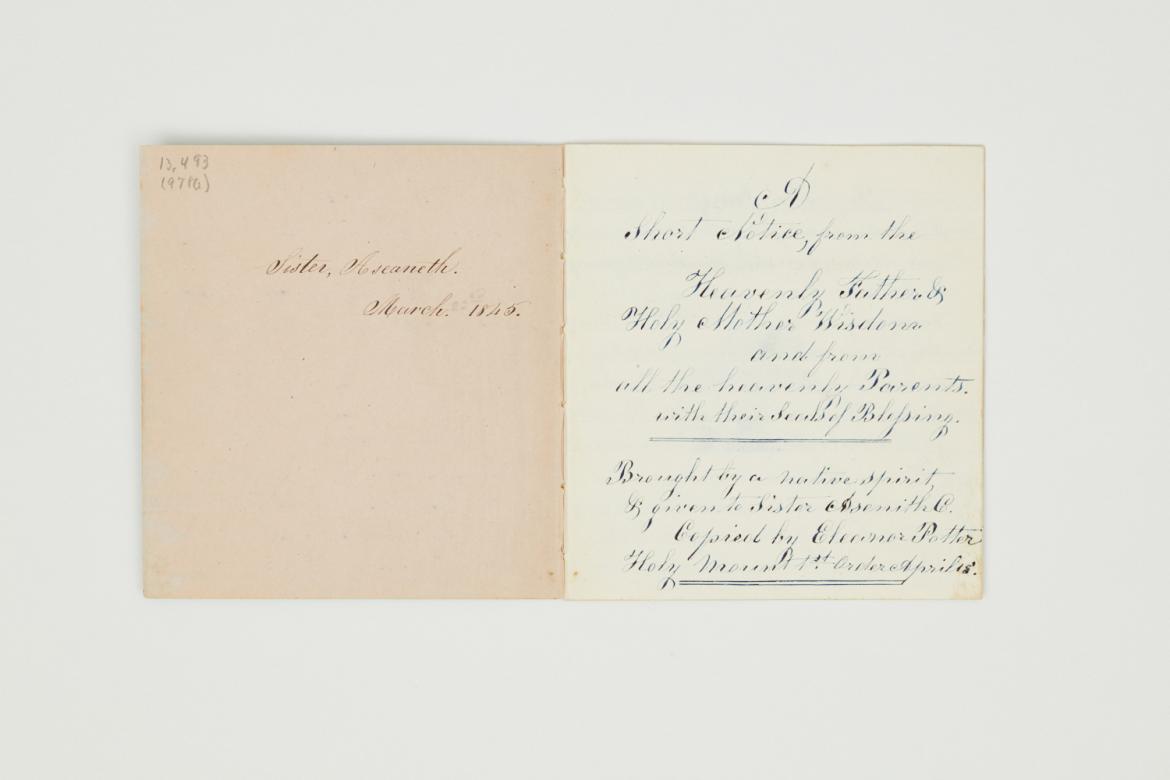 13,493
(978a)
Sister, Aseaneth.
March. 1845.
A
Short Notice, from the
Heavenly Father &
Holy Mother Wisdom
and from
all the heavenly Parents.
with their Seals of Blessing.
Brought by a native spirit,
& given to Sister Asenith C.
Copied by Eleanor Potter
Holy Mount 1st Order April 15.